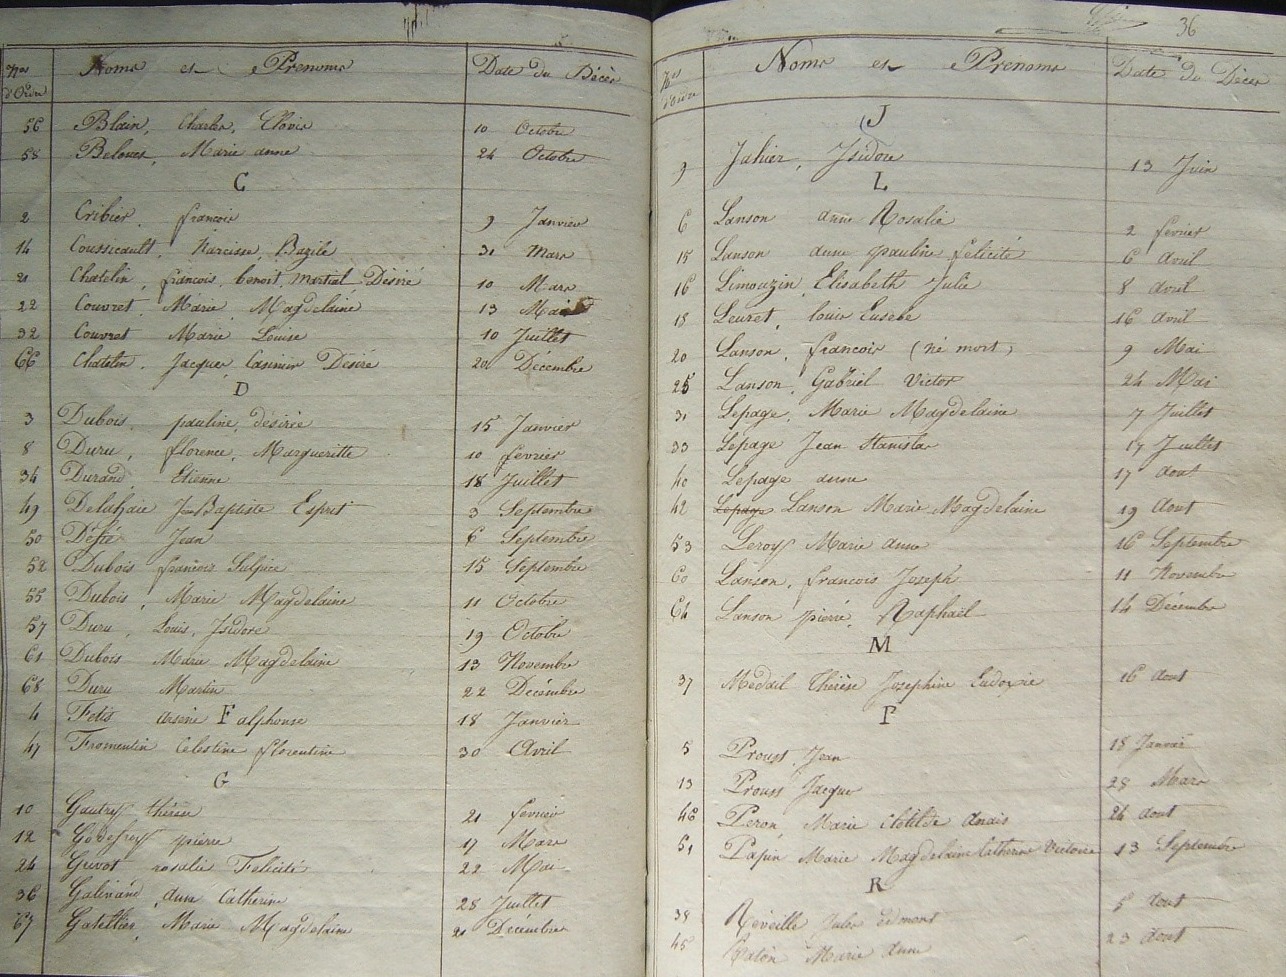 Nos d'Ordre Noms et Prenoms Date du Décès
56 Blain, Charles, Clovis 10 Octobre
58 Marie anne 24 Octobre
C
2 Cribier, francois 9 Janvier
14 Coussicault, Narcisse, Bazile 31 Mars
21 Chatelin, francois, benoit, Martial, Désiré 10 Mars
22 Couvret, Marie, Magdelaine 13 Mai
32 Couvret Marie Louise 10 Juillet
66 Chatelin, Jacques Casimir Désiré 20 Décembre
D
3 Dubois, pauline, désirée 15 Janvier
8 Duru, florence, Margueritte 10 fevrier
34 Durand, Etienne 18 Juillet
49 Delahaie Jean Baptiste Esprit 3 Septembre
50 Jean 6 Septembre
52 Dubois francois Sulpice 15 Septembre
55 Dubois, Marie Magdelaine 11 Octobre
57 Duru, Louis, Isidore 19 Octobre
61 Dubois Marie Magdelaine 13 Novembre
68 Duru Martin 22 Décembre
F
4 Fetis arsène alphonse 18 Janvier
47 Fromentin Celestine florentine 30 Avril
G
10 Gautry thérèse 21 fevrier
12 Godefroy pierre 17 Mars
24 Guvot rosalie Felicité 22 Mai
36 Galerand, anne Catherine 28 Juillet
67 Gatellier, Marie Magdelaine 21 Décembre
36
Nos d'Ordre Noms et Prenoms Date du Décès
J
9 Jahier, Isidore 13 Juin
L
6 Lanson anne Rosalie 2 fevrier
15 Lanson anne pauline felicité 6 Avril
16 Limouzin, Elisabeth Julie 8 Avril
18 Leuret, louis Eusebe 16 Avril
20 Lanson, francois (né mort) 9 Mai
25 Lanson, Gabriel Victor 24 Mai
31 Lepage, Marie Magdelaine 7 Juillet
33 Lepage Jean Stanislas 17 Juillet
40 Lepage anne 17 Aout
42 Lepage Lanson Marie Magdelaine 19 Aout
53 Leroy Marie anne 16 Septembre
60 Lanson, francois Joseph 11 Novembre
64 Lanson pierre, Raphaël 14 Décembre
M
37 Medail Thérèse Josephine Eudoxie 16 Aout
P
5 Proust, Jean 18 Janvier
13 Proust Jacque 28 Mars
46 Peron, Marie Clotilde Anais 24 aout
51 Papin Marie Magdelaine Catherine Victoire 13 Septembre
R
38 Reveille Jules edmont 5 Aout
45 Marie Anne 23 Aout